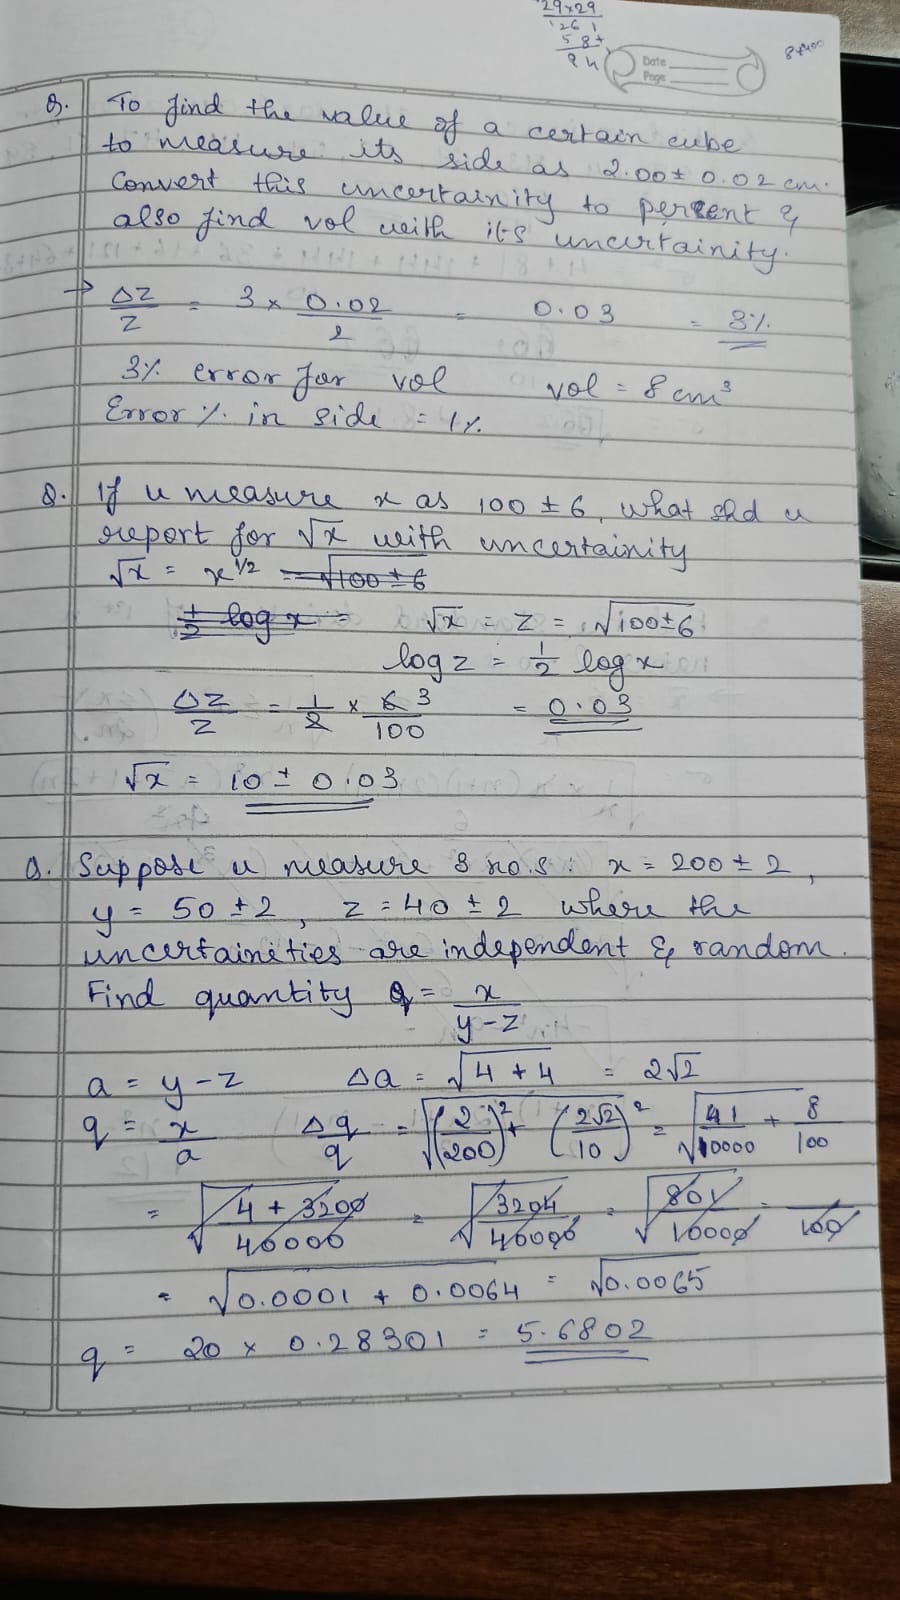 29x29
261
58+
Date
Page
8x400
Q. To find the value of a certain cube
to measure its side as 2.00 ± 0.02 cm.
Convert this uncertainity to percent &
also find vol with its uncertainity.
→ ΔZ/Z = 3 x 0.02/2 = 0.03 = 3%
3% error for vol vol = 8 cm³
Error % in side = 1%
Q. If u measure x as 100 ± 6, what shd u
report for √x with uncertainity
√x = x^1/2 = √100 ± 6
1/2 log x = √x = Z = √100±6
log z = 1/2 log x
ΔZ/Z = 1/2 x 6 3/100 = 0.03
√x = 10 ± 0.03
Q. Suppose u measure 3 no.s: x = 200 ± 2,
y = 50 ± 2, z = 40 ± 2 where the
uncertainities are independent & random.
Find quantity q = x/y-z
a = y - z Δa = √4 + 4 = 2√2
q = x/a Δq/q = √(2/200)² + (2√2/10)² = √41/10000 + 8/100
= √4 + 3200/40000 = √3204/40000 = √801/10000 = /100
= √0.0001 + 0.0064 = √0.0065
q = 20 x 0.28301 = 5.6802